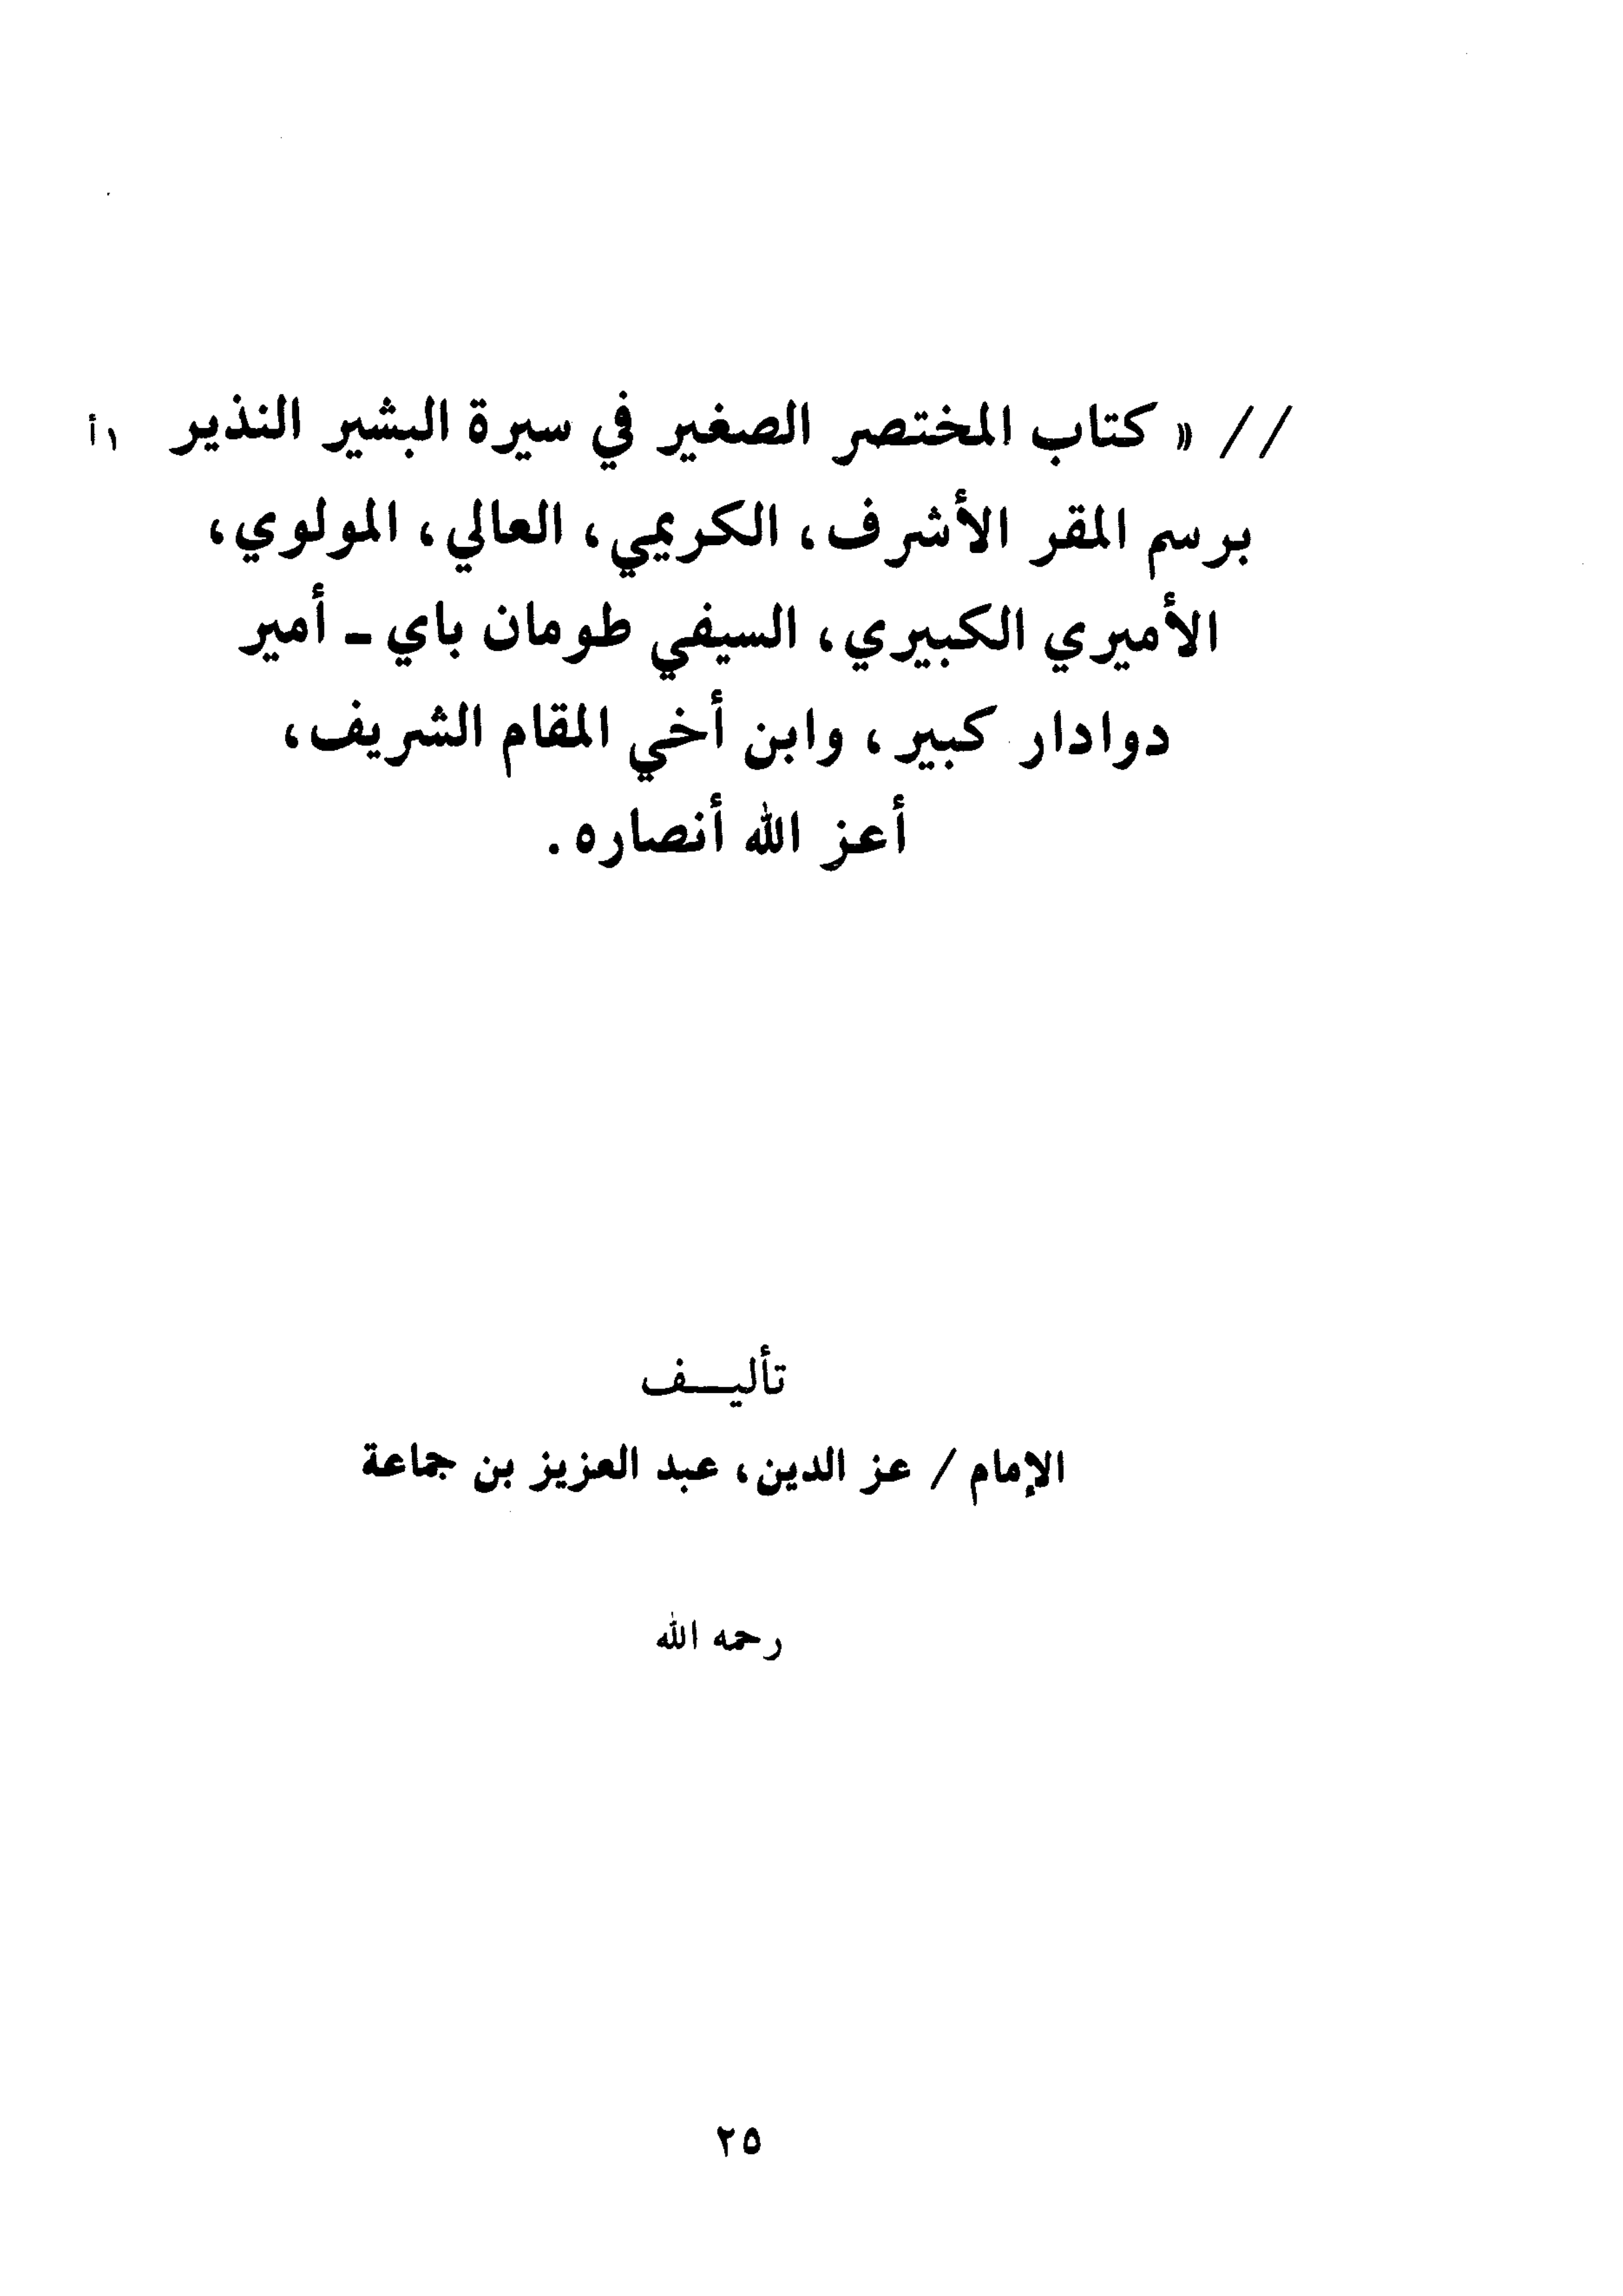 // « كتاب المختصر الصغير في سيرة البشير النذير ١أ
برسم المقر الأشرف، الكريمي، العالي، المولوي،
الأميري الكبيري، السيفي طومان باي - أمير
دوادار كبير، وابن أخي المقام الشريف،
أعز الله أنصاره.
تأليـف
الإمام / عز الدين، عبد العزيز بن جماعة
رحمه الله
٢٥